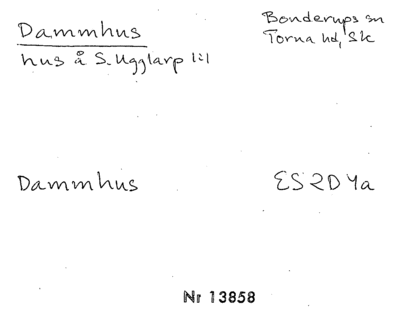 Dammhus
Bonderups sn
Torna hd, Sk
hus å S. Ugglarp 1:1
Dammhus
ES 2D 4a
Nr 13858